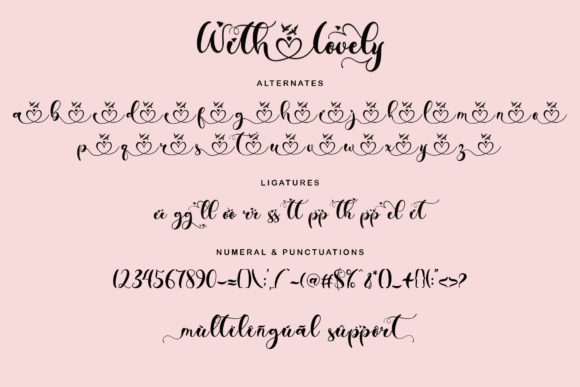 With lovely
ALTERNATES
a b c d e f g h i j k l m n o
p q r s t u v w x y z
LIGATURES
gg ll oo rr ss tt pp th pp el et
NUMERAL & PUNCTUATIONS
1234567890-=[]\;',./~!@#$%^&*()_+{}|:"<>?
mùltilïñgúãl sûppört